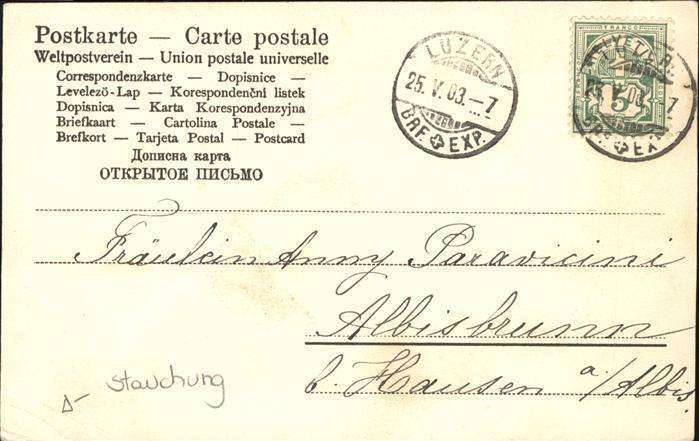 Postkarte — Carte postale
Weltpostverein — Union postale universelle
Correspondenzkarte — Dopisnice —
Levelező-Lap — Korespondenční lístek
Dopisnica — Karta Korespondencyjna
Briefkaart — Cartolina Postale —
Brefkort — Tarjeta Postal — Postcard
Дописна карта
ОТКРЫТОЕ ПИСЬМО
LUZERN
25.V.03.–7
BRF. EXP.
FRANCO
HELVETIA
5
Fräulein Anny Paravicini
Albisbrunn
b. Hausen a/Albis.
Stauchung